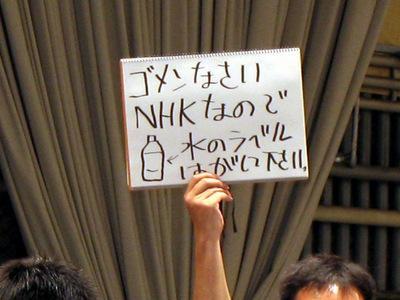 ゴメンなさい
NHKなので
水のラベル
はがして下さい